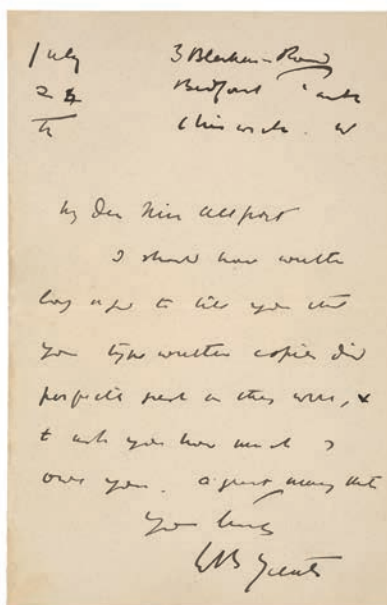 July 3 Blenheim Road
24 Bedford Park
th Chiswick. W
My Dear Miss Allport
I should have written
long ago to tell you that
your type written copies did
perfectly as they were, &
to ask you how much I
owe you. a great many
Your sincerely
W B Yeats